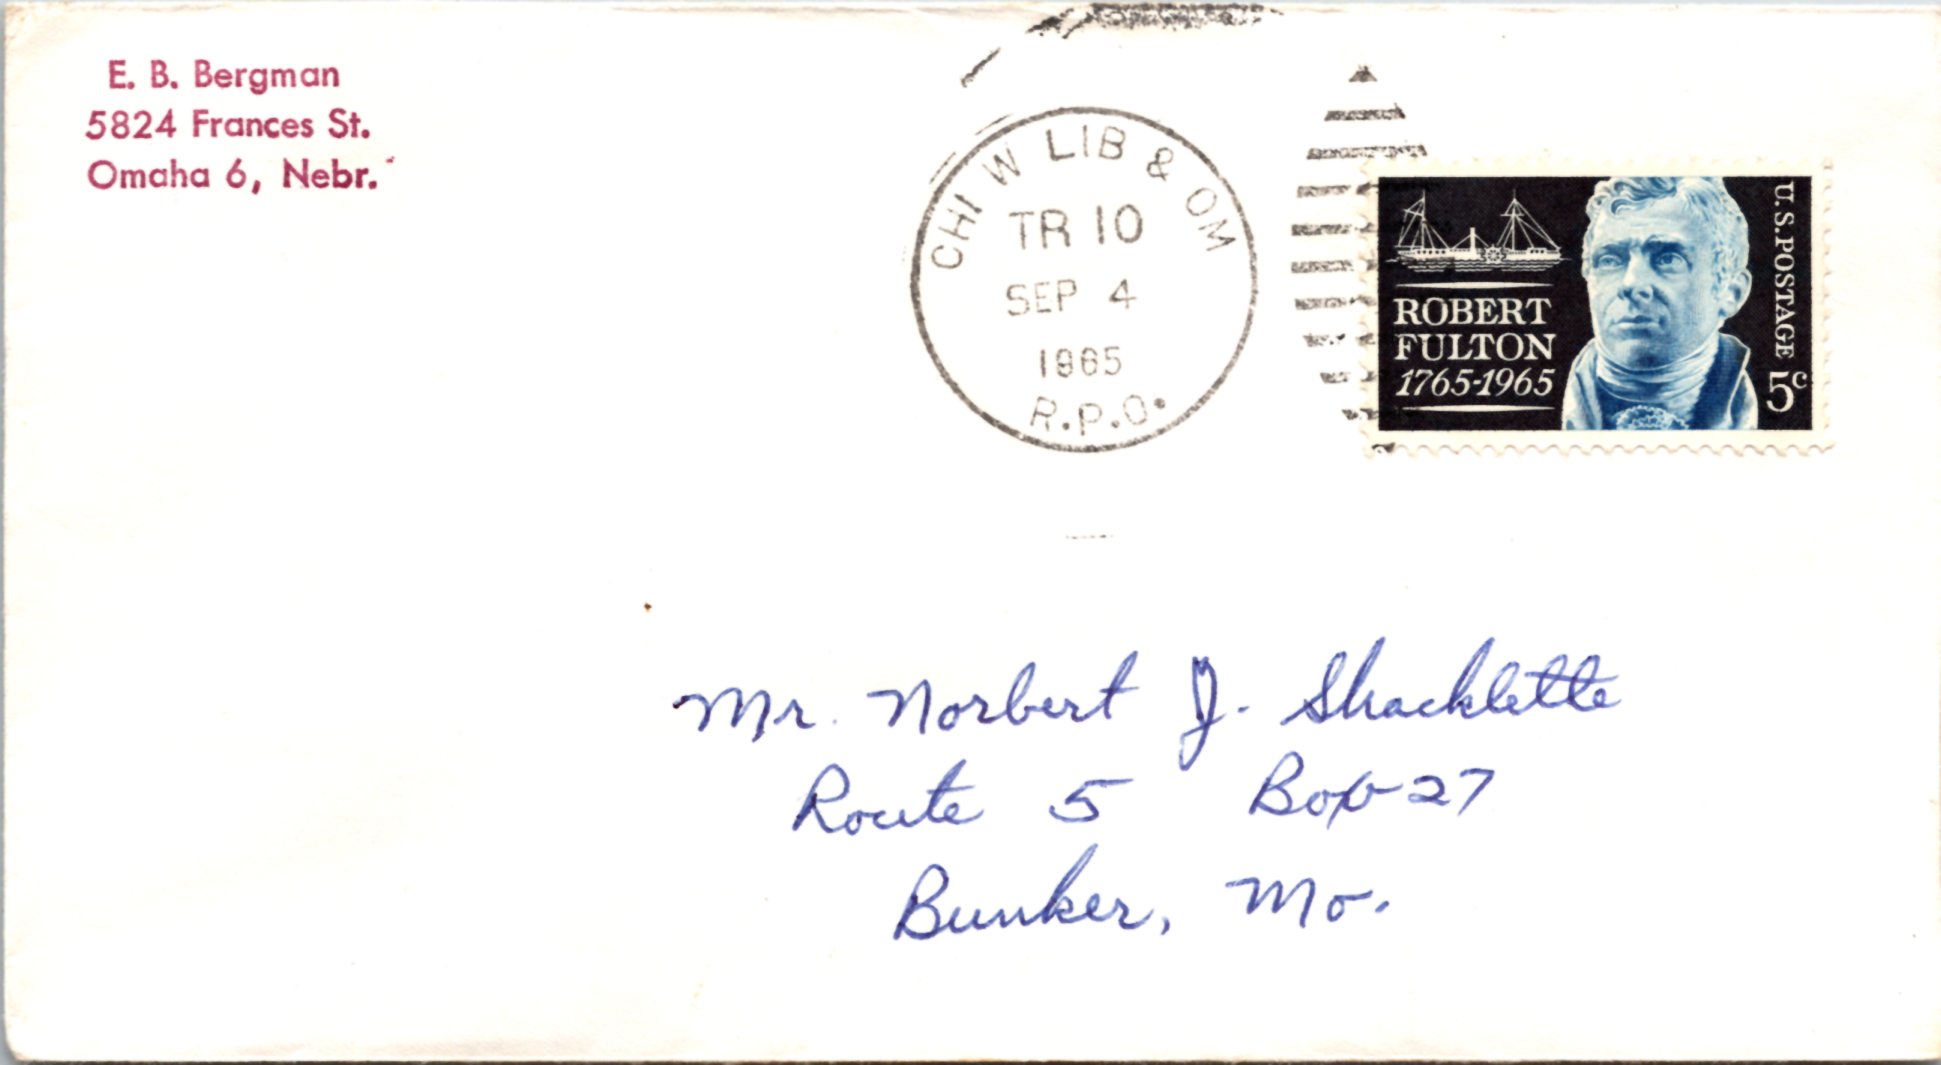 E. B. Bergman
5824 Frances St.
Omaha 6, Nebr.
CHI W LIB & OM
TR 10
SEP 4
1965
R.P.O.
ROBERT
FULTON
1765-1965
U.S. POSTAGE
5c
Mr. Norbert J. Shacklette
Route 5 Box 27
Bunker, Mo.